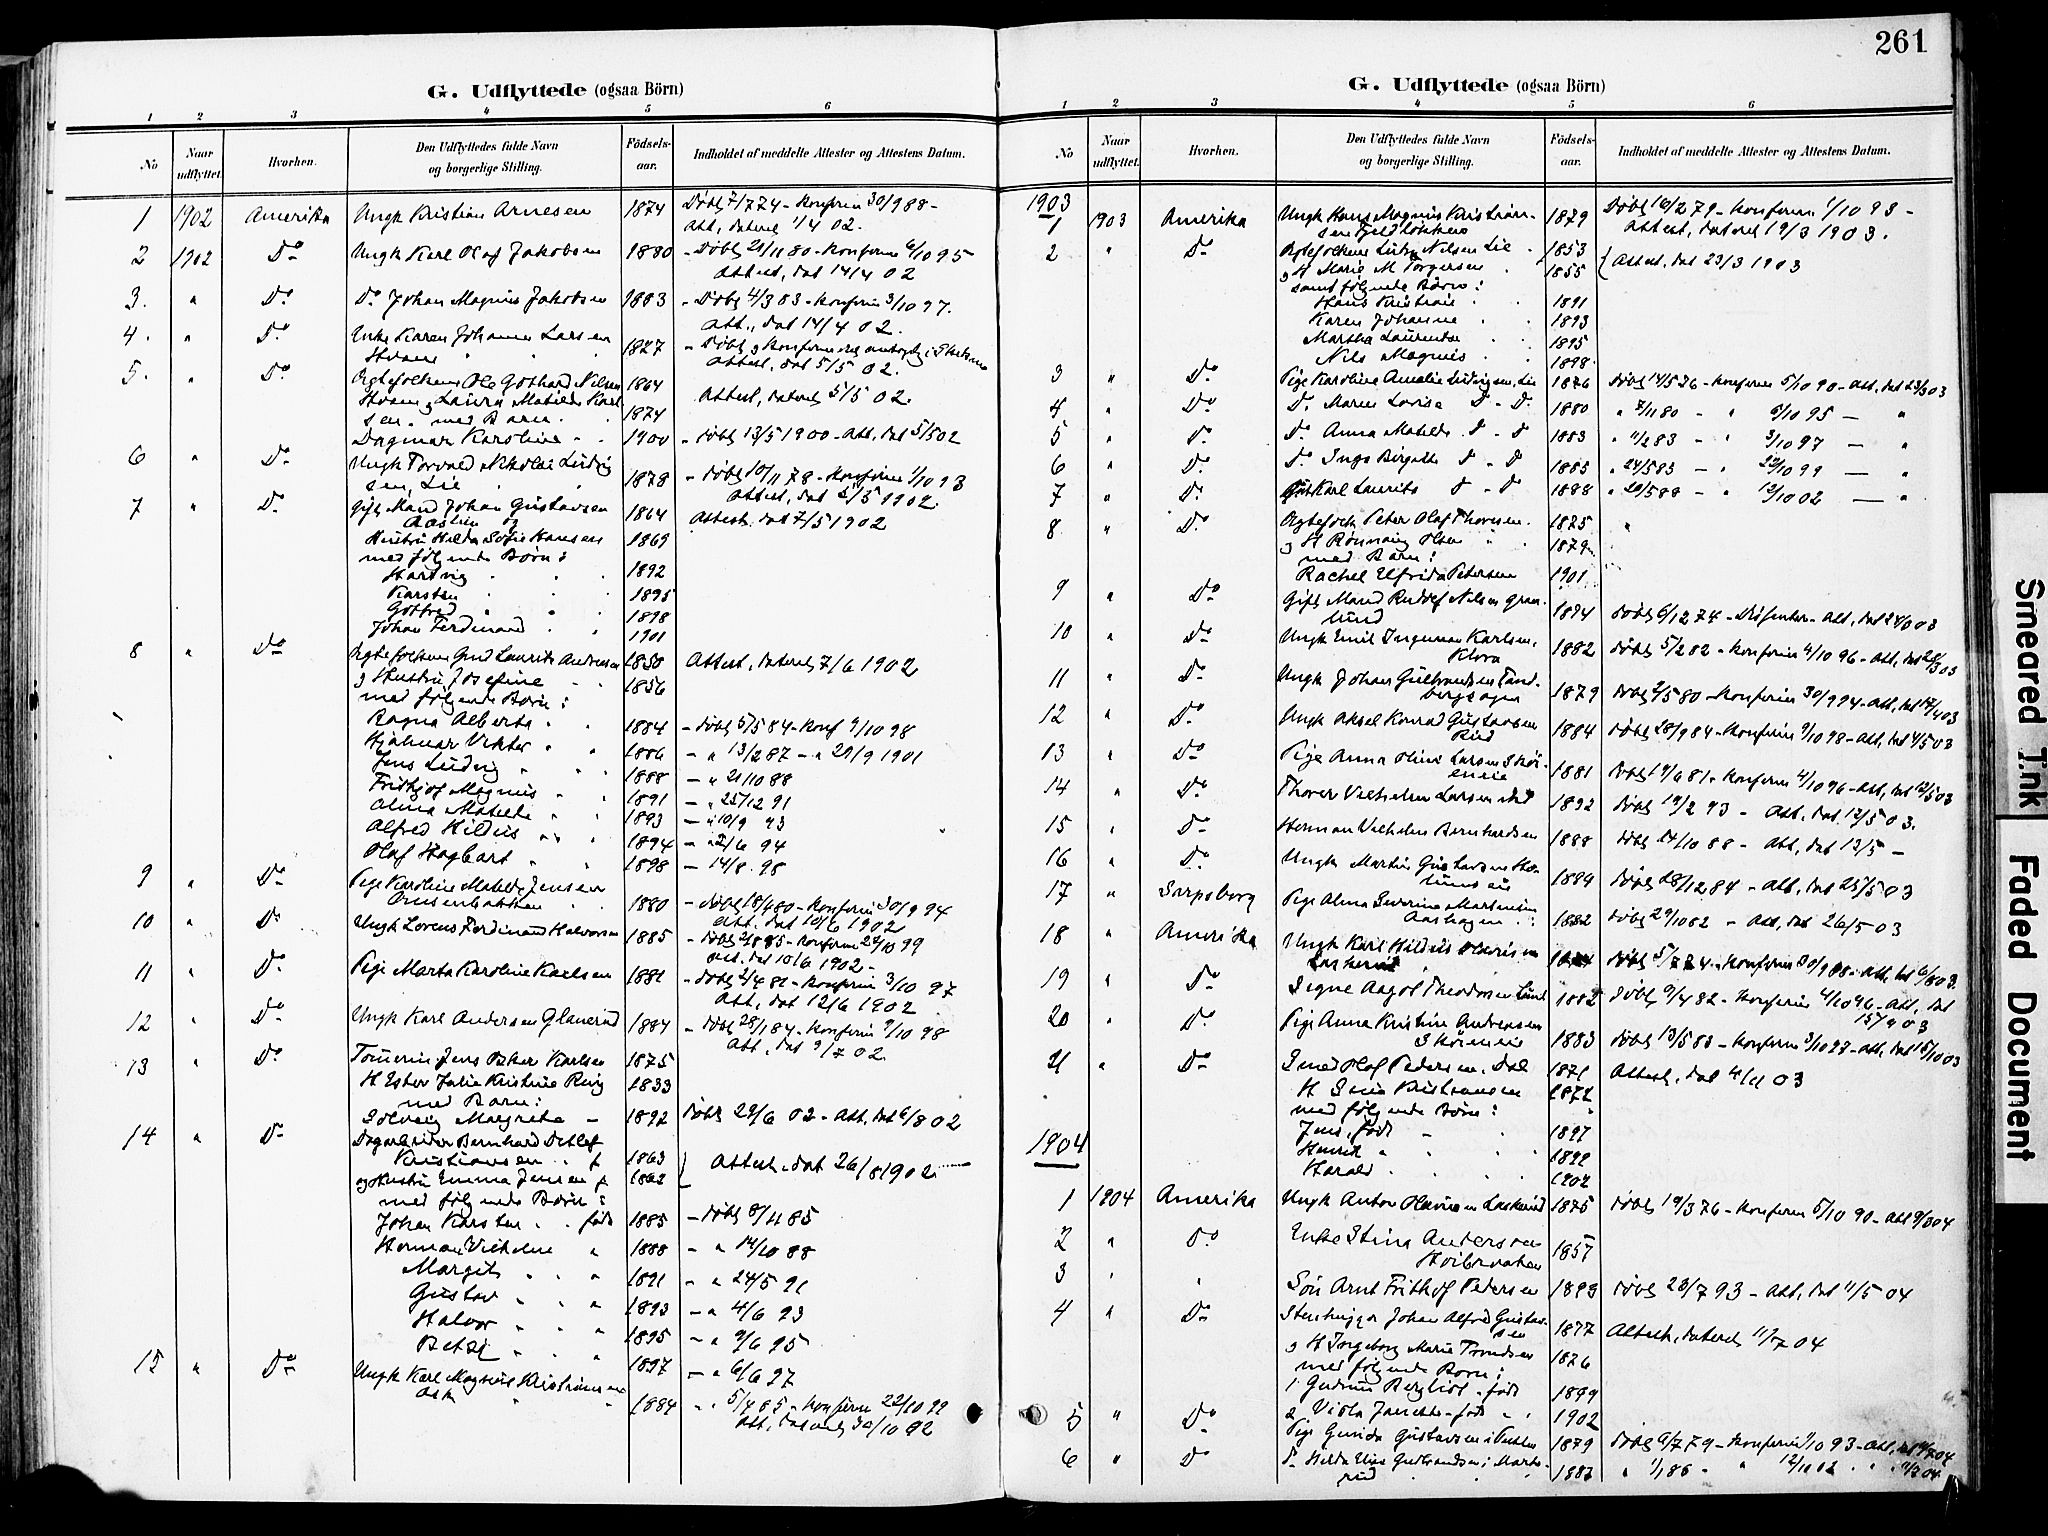 261
G. Udflyttede (ogsaa Börn)
1 2 3 4 5 6
No
Naar udflyttet.
Hvorhen.
Den Udflyttedes fulde Navn og borgerlige Stilling.
Födsels-aar.
Indholdet af meddelte Attester og Attestens Datum.
1 1902 Amerika Ungk Kristian Arnesen 1874 Döbt 7/7 74 - Konfirm 30/9 88 -
Att, dateret 1/4 02.
2 1902 Do Ungk Karl Olaf Jakobsen 1880 - Döbt 21/11 80 - Konfirm 6/10 95
Attest, dat 14/4 02
3. " Do Do Johan Magnus Jakobsen 1883 - Döbt 4/3 83 - Konfirm 3/10 97.
Att., dat 14/4 02.
4. " Do Enke Karen Johanne Larsen
1827 - Döbt og Konfirmeret
Attest, dat 5/5 02.
5. " Do Ægtefolkene Ole Gothard Nilsen 1864
Laura Matilde Karl
sen. med Barn 1874 Attest, dateret 5/5 02.
Dagmar Karoline 1900 - Döbt 13/5 1900 - Att, dat 5/5 02
6 " Do Ungk Torvald Nikolai Ludvig
sen Lie 1878 - Döbt 10/11 78 - Konfirm 1/10 93
Attest, dat 1902.
7 " Do Gift Mand Johan Gustavsen 1864 Attest. dat 7/5 1902
og
Hustru Hilda Sofie Hansen 1869
med følgende Börn:
Hartvig 1892
Karsten 1895
Gotfred 1898
Johan Ferdinand 1901
8 " Do Ægtefolkene Laurits Andersen 1850 Attest, dateret 7/6 1902
og Hustru Josefine 1856
med følgende Börn:
Ragna Alberta 1884 - Döbt 5/5 84 - Konf 9/10 98
Hjalmar Viktor 1886 - " 13/2 87 - " 29/9 1901
Jens Ludvig 1888 - " 21/10 88
Fridtjof Magnus 1891 - " 25/12 91
Alma Matilde 1893 - " 10/9 93
Alfred Hildus 1894 - " /6 94
Olaf Hagbart 1898 - 14/8 98
9 " Do Pige Karoline Matilde Jensen
1880 - Döbt 18/4 80 - Konfirm 30/9 94
Att. dat 10/6 1902
10 " Do Ungk Lorens Ferdinand Halvorsen 1885 - Döbt 2/8 85 - Konfirm 22/10 99
Att. dat 10/6 1902 -
11 " Do Pige Marta Karoline Karlsen 1882 - Döbt 2/4 82 - Konfirm 3/10 97
Att, dat 12/6 1902
12 " Do Ungk Karl Andersen Glanerud 1884 - Döbt 28/1 84 - Konfirm 9/10 98
Att, dat 9/7 02
13 " Do Jens Peter Karlsen 1875
H Ester Julie Kristine Ring 1833
med Barn:
Solveig Margrete 1892 Döbt 29/6 02 - Att, dat 6/8 02
14 " Do Dagarbeider Bernhard Detlef
Kristiansen f 1863
og Hustru Emma Jensen f 1862 } Attest. dat 26/8 1902
med følgende Börn:
Johan Karsten født 1885 - Döbt 8/11 85
Herman Vilhelm " 1888 - " 14/10 88
Margit " 1891 - " 24/5 91
Gustav " 1893 - " 4/6 93
Halvor " 1895 - " 9/6 95
Betzi " 1897 - " 6/6 97
15 " Do Ungk Karl Magnus Kristiansen
Ask 1884 - " 5/4 85 - Konfirm 22/10 99
Att, dateret 30/10 92
G. Udflyttede (ogsaa Börn)
1 2 3 4 5 6
No
Naar udflyttet.
Hvorhen.
Den Udflyttedes fulde Navn og borgerlige Stilling.
Födsels-aar.
Indholdet af meddelte Attester og Attestens Datum.
1903
1 1903 Amerika Ungk Hans Magnus Kristian
sen 1879 Döbt 16/2 79 - Konfirm 1/10 93 -
Attest, dateret 19/3 1903.
2 " Do Ægtefolkene Ludvig Nilsen Lie 1853
og H Marie M Torgersen 1855 } Attest, dat 23/3 1903
samt følgende Børn:
Hans Kristian 1891
Karen Johanne 1893
Martha Laurentse 1895
Nils Magnus 1898
3 " Do Pige Karoline Amalie Ludvigsen Lie 1876 Döbt 14/5 76 - Konfirm 5/10 90 - att, dat 23/3 03
4 " Do Do Maren Lovise D - D 1880 " 7/11 80 - " 6/10 95 - "
5 " Do Do Anna Matilde D - D 1883 " 11/2 83 - " 3/10 97 - "
6 " Do Do Inga Birgitte D - D 1885 " 24/5 83 - " 22/10 99 - "
7 " Do Gut Karl Laurits D - D 1888 " 20/5 88 - " 12/10 02 - "
8 " Do Ægtefolk Peter Olaf Thoresen 1875 "
og H Rönnaug Olsen 1879
med Barn:
Rachel Elfrida Petersen 1901
9 " Do Gift Mand Rudolf Nilsen Gran
lund 1874 Döbt 6/12 74 - Dissenter - Att, dat 24/3 03
10 " Do Ungk Emil Ingeman Karlsen
Klova 1882 Döbt 5/2 82 - Konfirm 4/10 96 - Att, dat 28/3 03
11 " Do Ungk Johan Gulbrandsen Sand
bergsagen 1879 Döbt 2/5 80 - Konfirm 30/9 94 - Att, dat 14/4 03
12 " Do Ungk Aksel Konrad Gustavsen
Rud 1884 Döbt 28/9 84 - Konfirm 9/10 98 - Att, dat 4/5 03
13 " Do Pige Anna Oline Larsen
1881 Döbt 19/6 81 - Konfirm 4/10 96 - Att, dat 12/5 03
14 " Do Thorer Vilhelm Larsen 1892 Döbt 19/2 93 - Att. dat 12/5 03.
15 " Do Herman Vilhelm Bernhardsen 1888 Döbt 14/10 88 - Att, dat 13/5 -
16 " Do Ungk Martin Gustavsen
1884 Döbt 28/12 84 - Att, dat 25/5 03
17 " Sarpsborg Pige Alma Severine Martinsen
Aashagen 1882 Döbt 29/10 82 - Att, dat 26/5 03
18 " Amerika Ungk Karl Hildus Olavesen
Laskerud Döbt 5/7 74 - Konfirm 30/9 88 - Att, dat 6/8 03.
19 " Do Signe Aagot Theodorsen Lund 1882 Döbt 9/4 82 - Konfirm 4/10 96 - Att, dat
20 " Do Pige Anna Kristine Andreasen
1883 Döbt 13/5 83 - Konfirm 3/10 97 - Att, dat 15/10 03
21 " Do Smed Olaf Pedersen. Dal 1871 Attest, dat 4/11 03
H Kristiansen 1872
med følgende Börn:
Jens, født 1897
Henrik " 1899
Harald 1902
1904
1 1904 Amerika Ungk Anton Olavesen Laskerud 1875 Döbt 19/3 76 - Konfirm 5/10 90 - Att 9/3 04
2 " Do Enke Stina Anderson
Höibraaten 1857
3 Søn Arnt Frithjof Pedersen 1893 Döbt 23/7 93 - Att, dat 11/5 04
4 " Do Stenhugger Johan Alfred Gustav
sen 1877 Attest, dateret 11/7 04
og H Ingeborg Marie Trondsen 1876
med følgende Börn:
1 Gudrun Bergliot født 1899
2 Viola Janette født 1902
5 " Do Pige Gunda Gustavsen 1879 Döbt 6/7 79 - Konfirm 1/10 93 - Att,
6 " Do Do Hilda Elise Gulbrandsen
rud 1887 " 1/1 86 - " 12/10 02
Smeared Ink
Faded Document